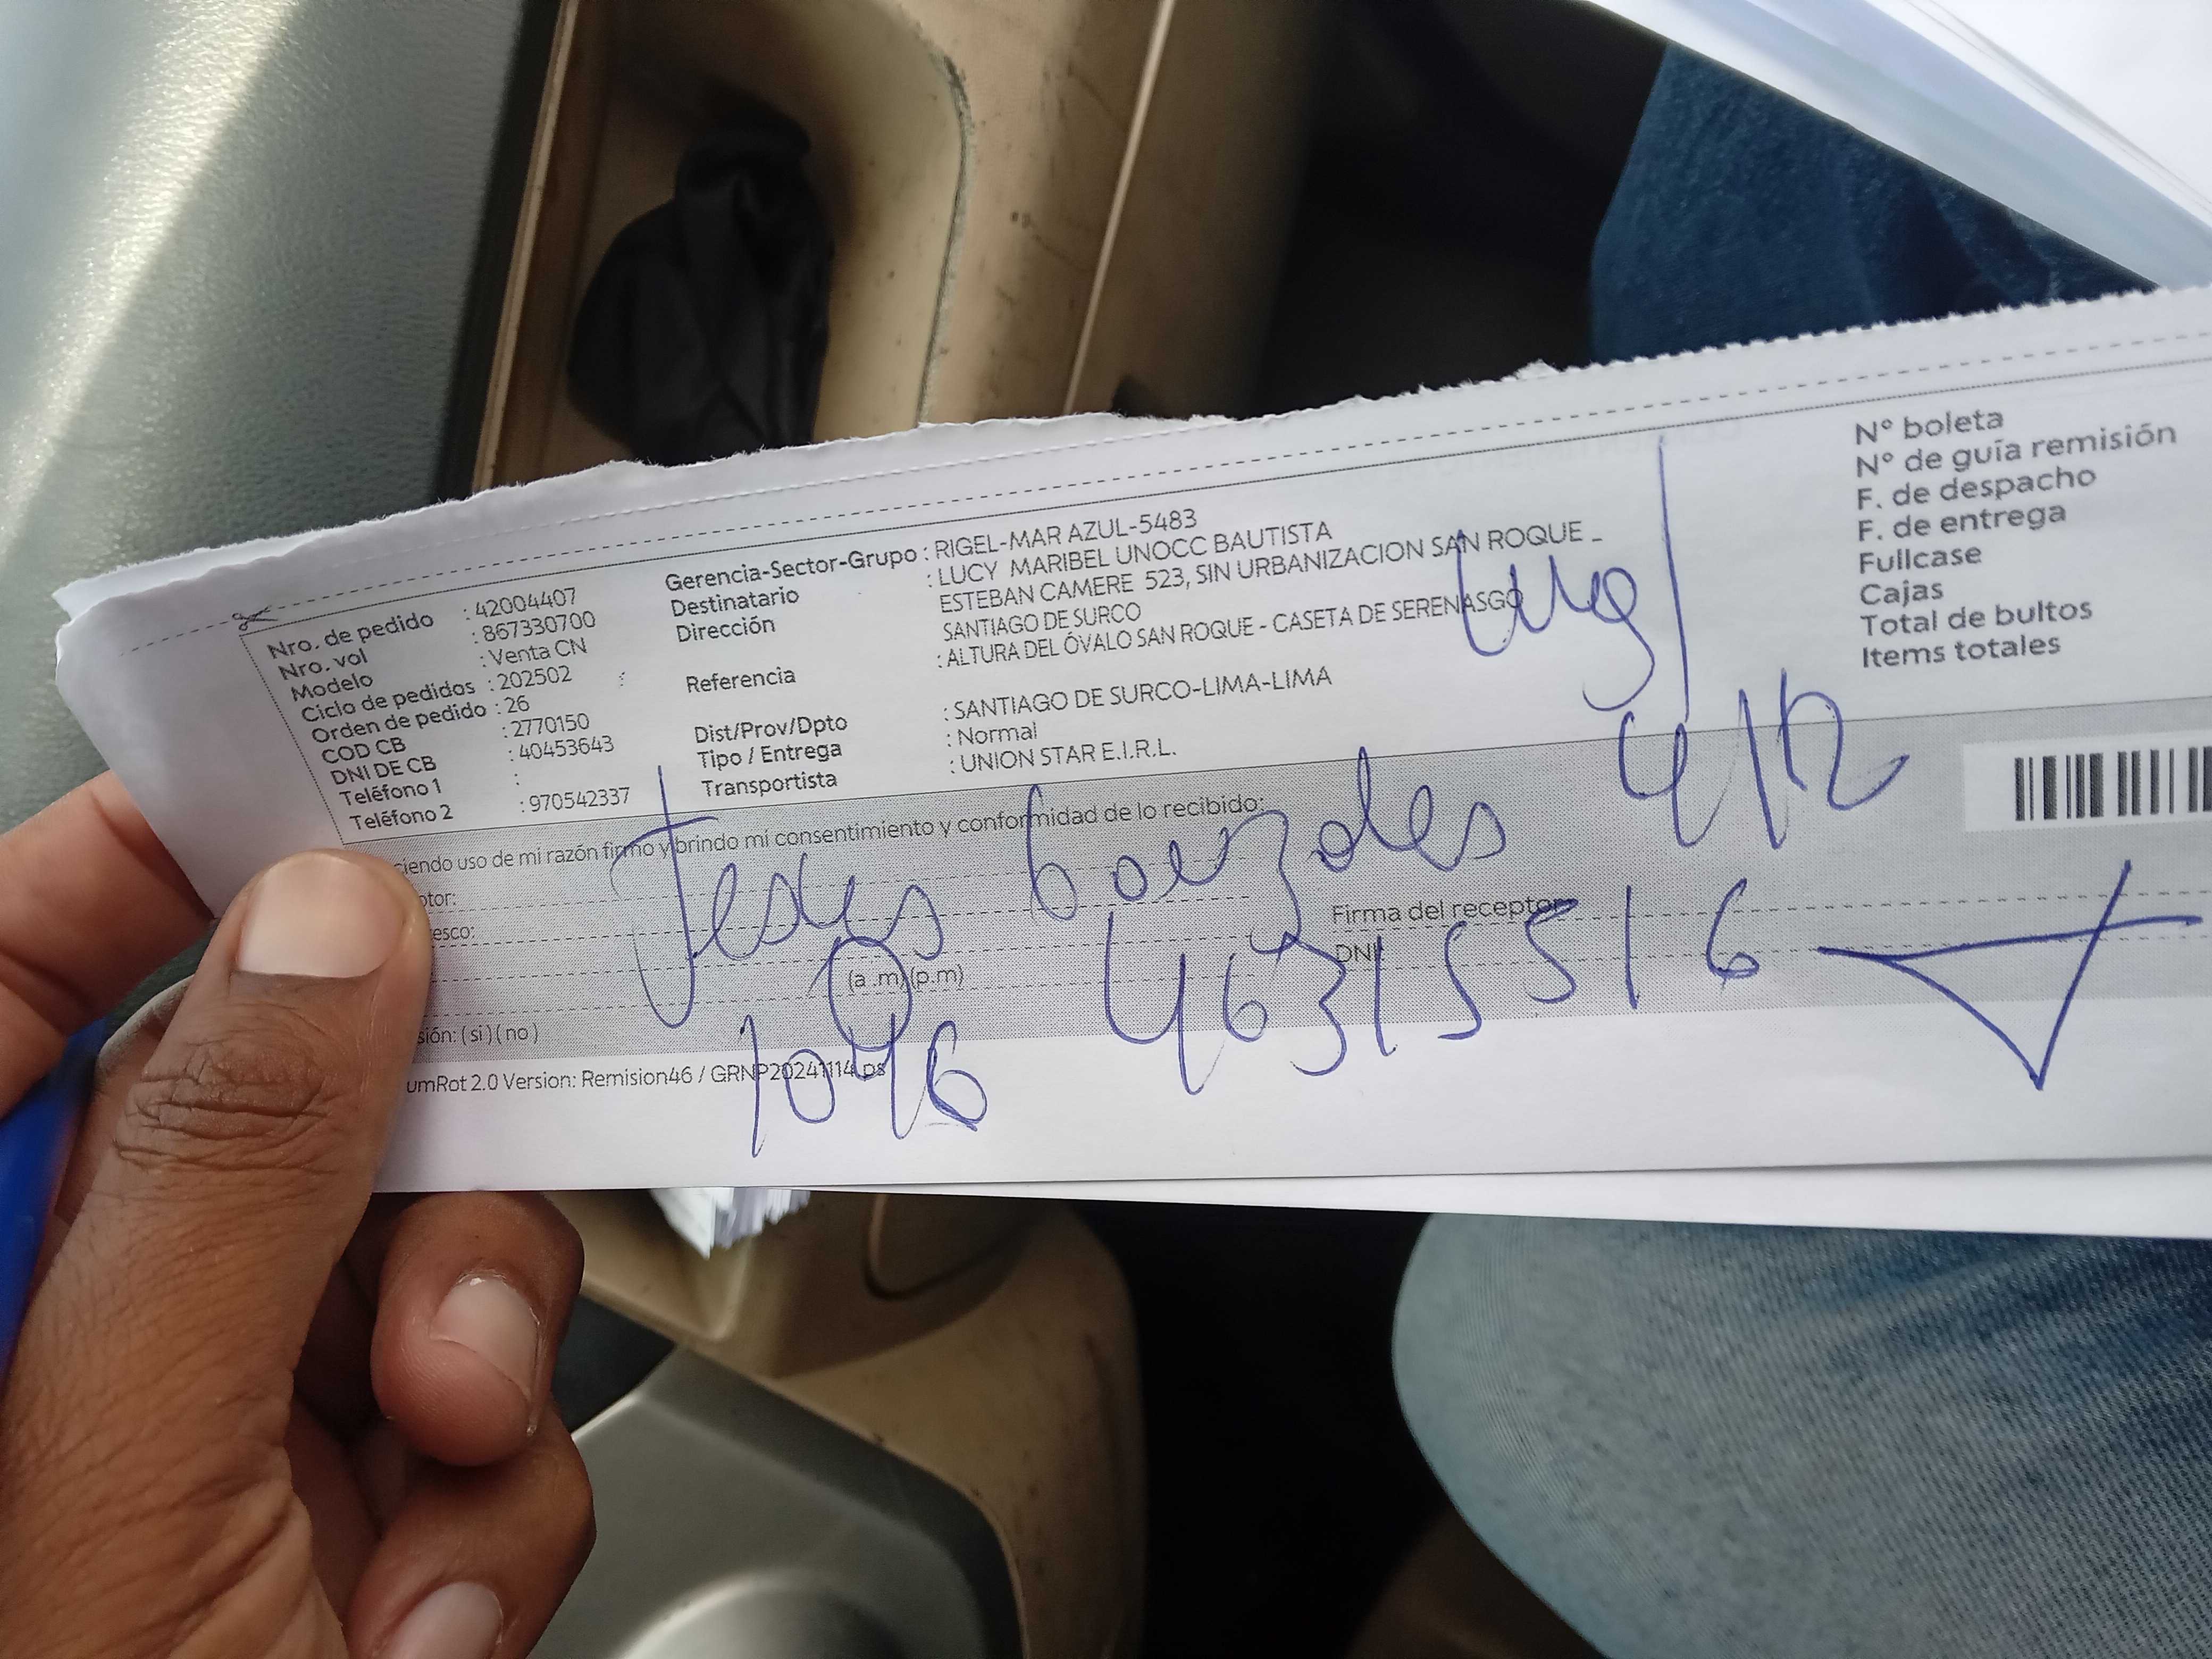 Nro. de pedido : 42004407
Nro. vol : 867330700
Modelo : Venta CN
Ciclo de pedidos : 202502
Orden de pedido : 26
COD CB : 2770150
DNI DE CB : 40453643
Teléfono 1 :
Teléfono 2 : 970542337
Gerencia-Sector-Grupo : RIGEL-MAR AZUL-5483
Destinatario : LUCY MARIBEL UNOCC BAUTISTA
Dirección ESTEBAN CAMERE 523, SIN URBANIZACION SAN ROQUE _
SANTIAGO DE SURCO
Referencia : ALTURA DEL ÓVALO SAN ROQUE - CASETA DE SERENASGO
Dist/Prov/Dpto : SANTIAGO DE SURCO-LIMA-LIMA
Tipo / Entrega : Normal
Transportista : UNION STAR E.I.R.L.
N° boleta
N° de guía remisión
F. de despacho
F. de entrega
Fullcase
Cajas
Total de bultos
Items totales
ciendo uso de mi razón firmo y brindo mi consentimiento y conformidad de lo recibido:
ptor:
esco:
(a .m) (p.m)
Firma del receptor
DNI:
46315516
sión: ( si ) ( no )
1046
umRot 2.0 Version: Remision46 / GRNP20241114.ps